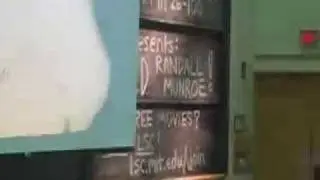 resents:
D RANDALL
MUNROE!
REE MOVIES?
LSC!
lsc.mit.edu/join